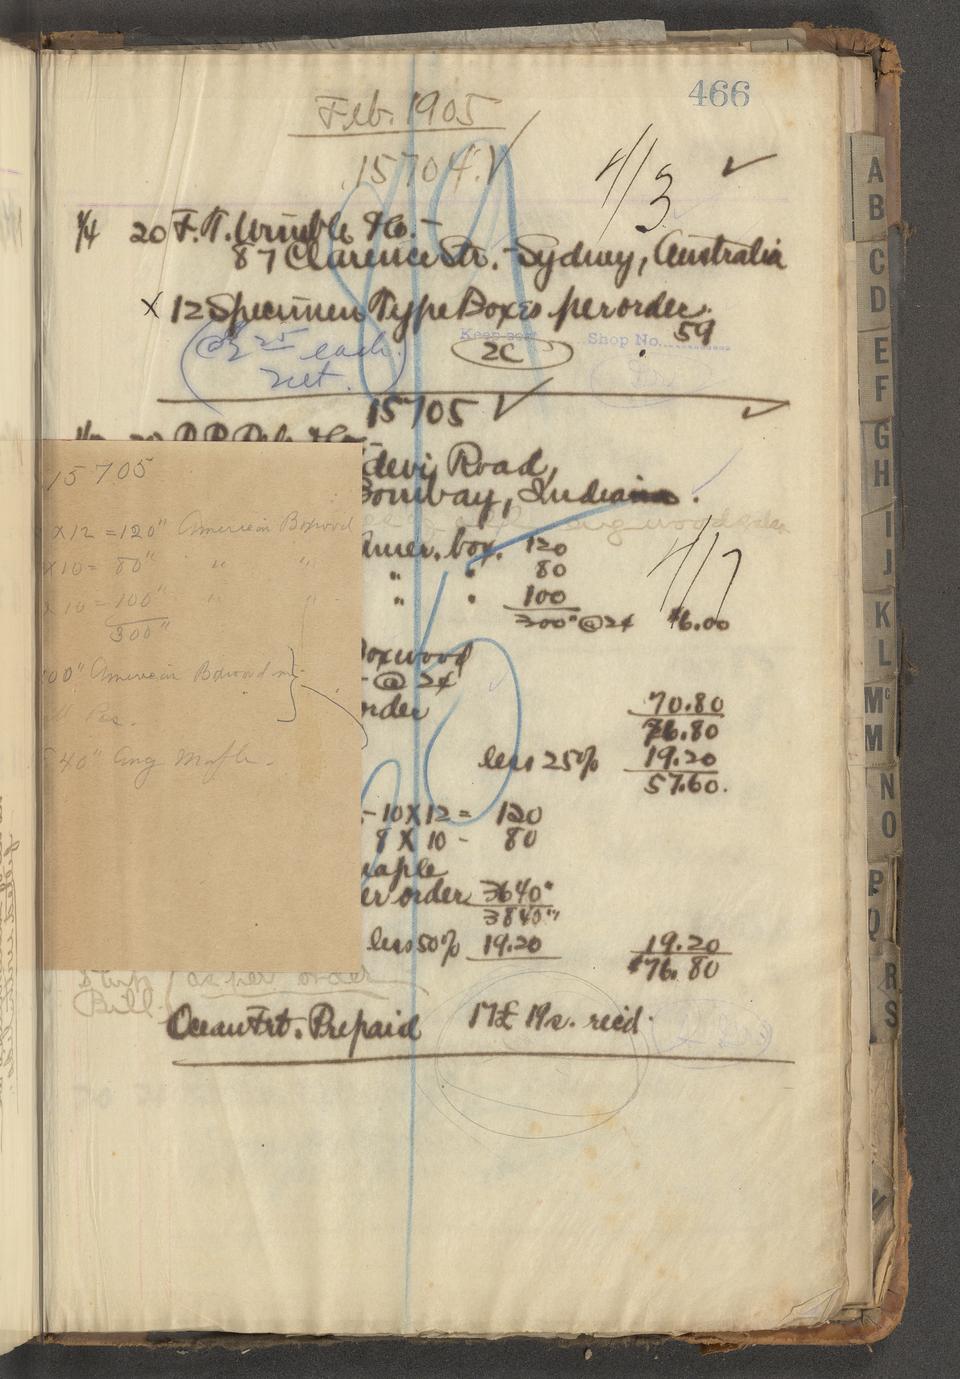 466
Feb. 1905
15704. √
4/3 ✓
1/4 20 F. T. Wimble & Co. -
87 Clarence Str. - Sydney, Australia
x 12 Specimen Type Boxes per order.
59
@ 2 25 each
net.
Keep sort
2C
Shop No.
15705 √ ✓
devi Road,
Bombay, India
Amer. box. 120
" " 80
" " 100
300" @ 2¢ $6.00
4/7
Boxwood
- @ 2¢
order 70.80
76.80
less 25% 19.20
57.60.
- 10 X 12 = 120
8 X 10 - 80
maple
per order 3640"
3840"
less 50% 19.20 19.20
$76.80
as per order
Bill
Ocean Frt. Prepaid 17£ 19s. rec'd.
15705
x 12 = 120" American Boxwood
x 10 = 80" " "
x 10 = 100" " "
300"
00" American Boxwood
Pcs.
40" Eng Maple.
A
B
C
D
E
F
G
H
I
J
K
L
Mc
M
N
O
P
Q
R
S